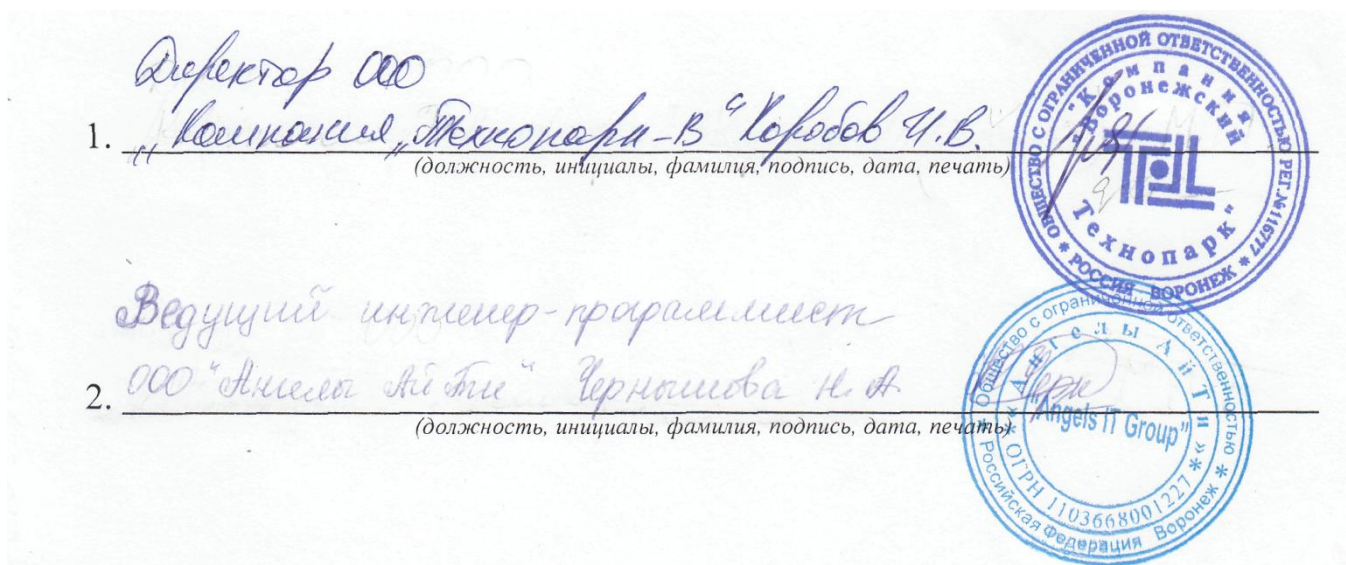 Директор ООО
1. „Компания „Технопарк-В“ Коробов И.В.
(должность, инициалы, фамилия, подпись, дата, печать)
ОБЩЕСТВО С ОГРАНИЧЕННОЙ ОТВЕТСТВЕННОСТЬЮ РЕГ.№116777
* РОССИЯ ВОРОНЕЖ *
"Компания
"Воронежский
Технопарк"
Ведущий инженер-программист
2. ООО "Ангелы Ай Ти" Чернышова Н.А.
(должность, инициалы, фамилия, подпись, дата, печать)
Общество с ограниченной ответственностью
* Российская Федерация Воронеж *
«Ангелы Ай Ти»
"Angels IT Group"
* ОГРН 1103668001227 *